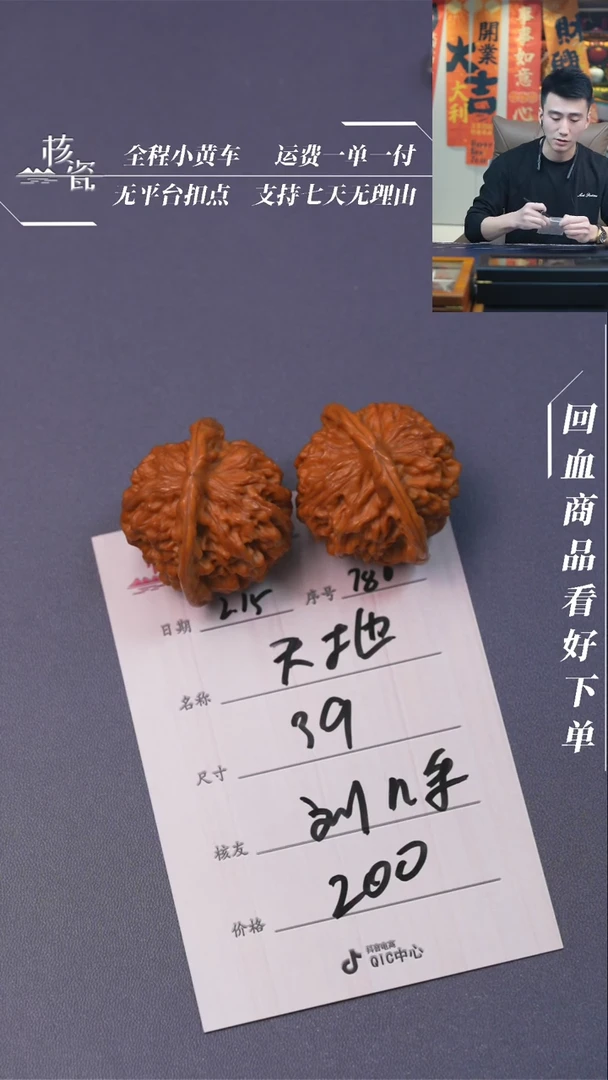 核瓷
全程小黄车 运费一单一付
无平台扣点 支持七天无理由
開業
大吉
大利
事事如意
心
財興
回血商品看好下单
日期 2.15 序号 780
名称 天地
尺寸 39
核友 刘几年
价格 200
抖音电商
QIC中心